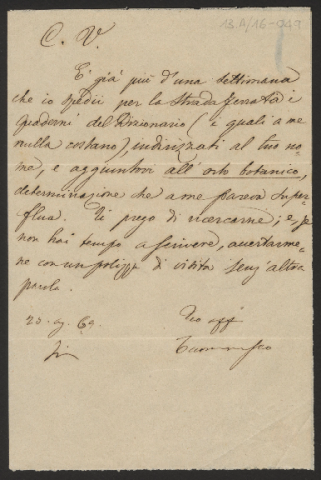 13 A/16-049
C. V.
E' già più d'una settimana
che io spedii per la strada ferrata i
quaderni del Dizionario (i quali a me
nulla costano), indirizzati al tuo no-
me, e aggiuntovi all'orto botanico,
determinazione che a me pareva super-
flua. Ti prego di ricercarne; e, se
non hai tempo a scrivere, avvertarme-
ne con un polizza di visita senz'altra
parola.
23. ag. 69. Tuo aff
Fir Tommaseo